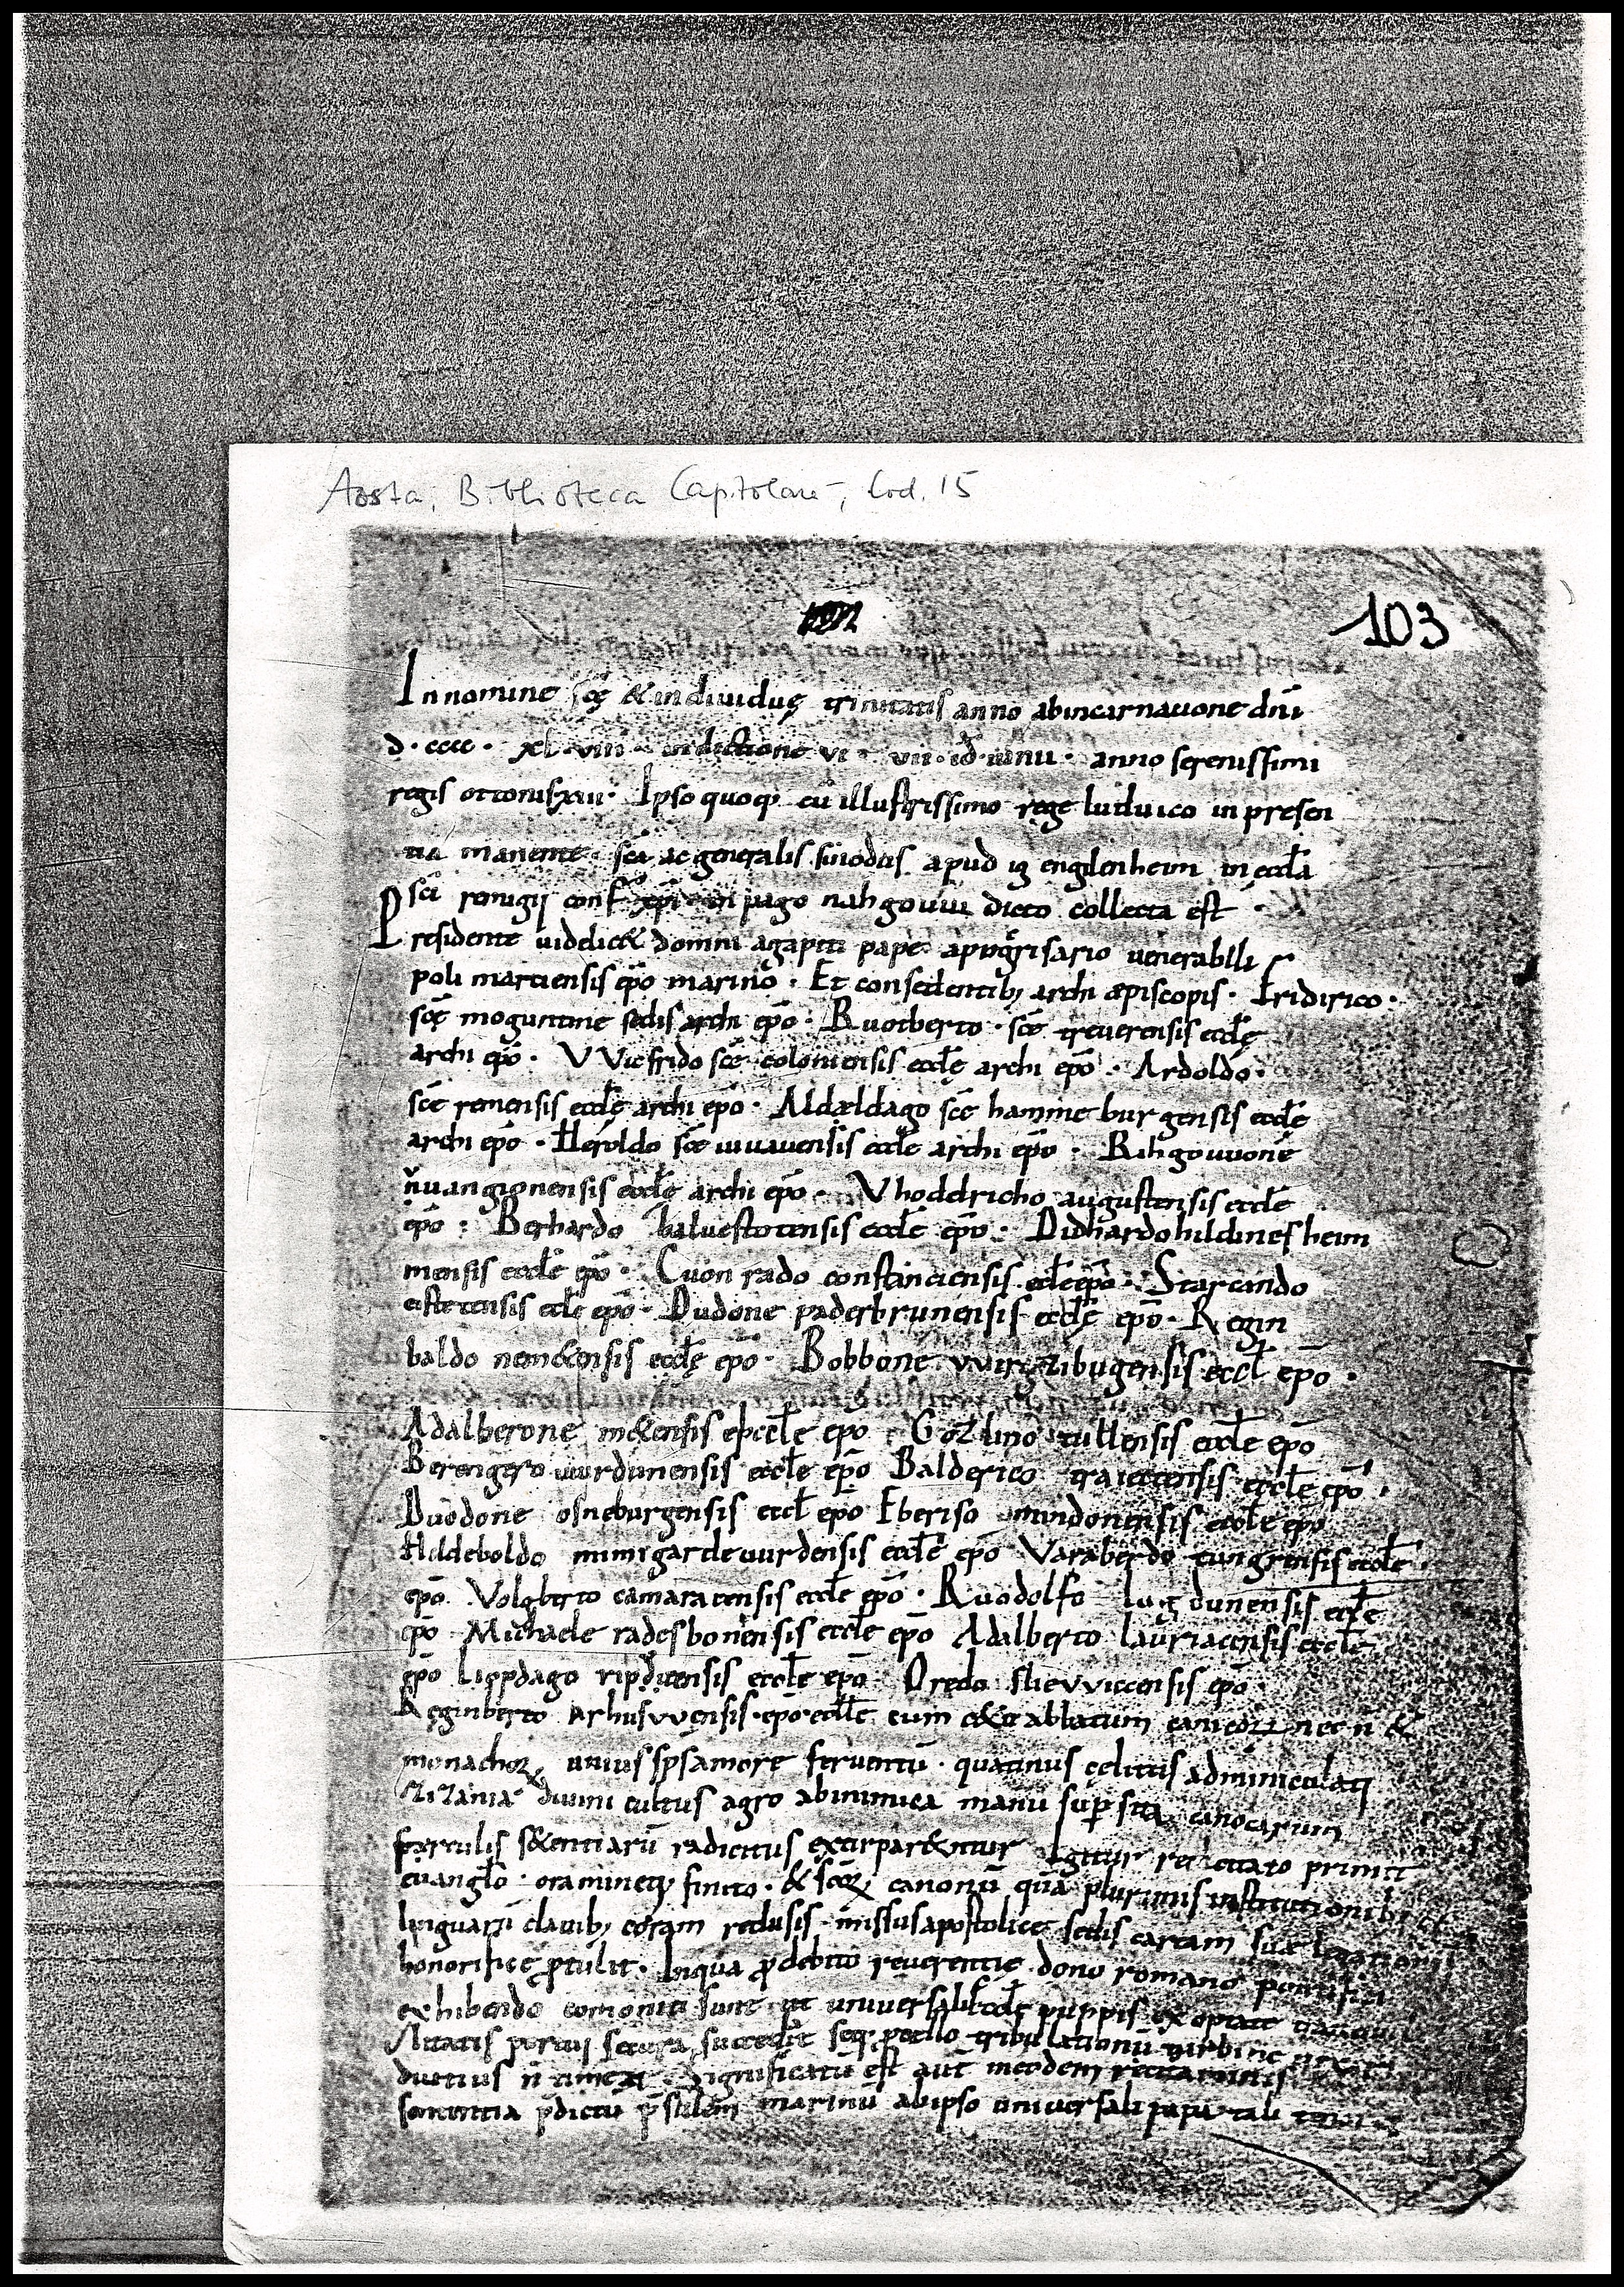 Aosta, Biblioteca Capitolare, Cod. 15
103
In nomine scę & indiuiduę trinitatis anno abincarnatione dn̄i
d · cccc · xl · viii · indictione vi · vii · id iunii · anno serenissimi
regis ottonis xii · Ipso quoq; cū illustrissimo rege luduico in presen
tia manente · sc̄a ac generalis sinodus apud ig englenheim in eccła
sc̄i remigij conf ep̄i in pago nahgouui dicto collecta est ·
Presidente uidelic& domni agapiti pape apocrisario venerabili
poli martiensis ep̄o marino · Et consedentib; archi æpiscopis · Fridirico ·
scę moguntine sedis archi ep̄o · Ruotberto · scē treuerensis eccłę
archi ep̄o · VVicfrido scē coloniensis eccłę archi ep̄o · Ardoldo ·
scē remensis eccłę archi ep̄o · Aldældago scē hammeburgensis eccłe
archi ep̄o · Heroldo scē iuuauensis eccłe archi ep̄o · Rihgouuone
nuuangionensis eccłę archi ep̄o · Vhodelricho augustensis eccłe
ep̄o · Berhardo haluestotensis eccłe ep̄o · Didhardo hildinesheim
mensis eccłe ep̄o · Cuonrado constanciensis ecłe ep̄o · Starcando
eistetensis ecłe ep̄o · Dudone paderbrunensis eccłę ep̄o · Regin
baldo nem&ensis eccłę ep̄o · Bobbone vvirzibugensis eccł ep̄o ·
Adalberone m&ensis eccłe epo · Gozlino tullensis eccłe epo
Berengero uurdunensis eccłe ep̄o Balderico traiectensis eccłe ep̄o ·
Duodone osneburgensis eccł epo Eberiso mindonensis eccłe epo
Hildeboldo mimigardeuurdensis eccłe ep̄o Varaberdo tungrensis eccłe
ep̄o Volgberto camaracensis eccłe ep̄o · Ruodolfo lugdunensis eccłe
ep̄o Michaele radesbonensis eccłe ep̄o Adalberto lauriacensis eccłe
ep̄o Lippdago ripdicensis eccłe ep̄o · Oredo sliewiccensis ep̄o
Reginberto Arhusvvensis · ep̄o · eccłe cum ablatum nec n̄ &
monachoꝝ unius sp̄s amore feruentū · quatinus cęlitus adminiculati
zizania diuini cultus agro abinimica manu sup̄sita canocarum
ferrulis s&entiarū radicitus extirpar&ntur Igitur recitato primit
euangło · oramineq; finito · & scōꝝ canonū qua plurimis institutionib;
linguarū clauib; coram reclusis · missus apostolicę sedis cartam suæ legationis
honorifice ꝓtulit · Inqua ꝓ debito reuerentię dono romano pontifici
exhibendo ut uniuersalis ecclę puppis
portū secura succed&
diutius n̄ Significatū est aut meodem
sententia p̄dictū p̄sulem marinū abipso uniuersali papa tali